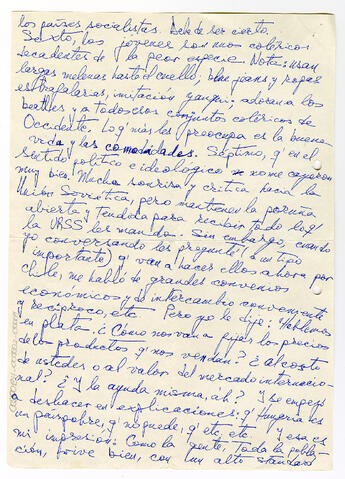 los países socialistas. Debe de ser cierto.
Sexto, los jóvenes son unos coléricos
decadentes de la peor especie. Nota: usan
largas melenas hasta el cuello, blue jeans y ropas
estrafalarias, imitación yanqui, adoran a los
beatles y a todos los conjuntos coléricos de
Occidente. Lo q' más les preocupa es la buena
vida y las comodidades. Séptimo, q' en el
sentido político e ideológico no me cayeron
muy bien. Mucha sonrisa y crítica hacia la
Unión Soviética, pero mantienen la
abierta y tendida para recibir todo lo q'
la URSS les manda. Sin embargo, cuando
yo conversando les pregunté a un tipo
importante, q' van a hacer ellos ahora por
Chile, me habló de grandes convenios
económicos, y de intercambio conveniente
y recíproco, etc. Pero yo le dije: Hablemos
en plata. ¿Cómo nos van a fijar los precios
de los productos q' nos vendan? ¿Al costo
de ustedes o al valor del mercado internacio-
nal? ¿Y la ayuda misma, ah? Y se empezó
a deshacer en explicaciones: q' Hungría es
un país pobre, q' no puede, q' etc, etc. Y esa es
mi impresión: Como la gente, toda la pobla-
ción, vive bien, con un alto standard